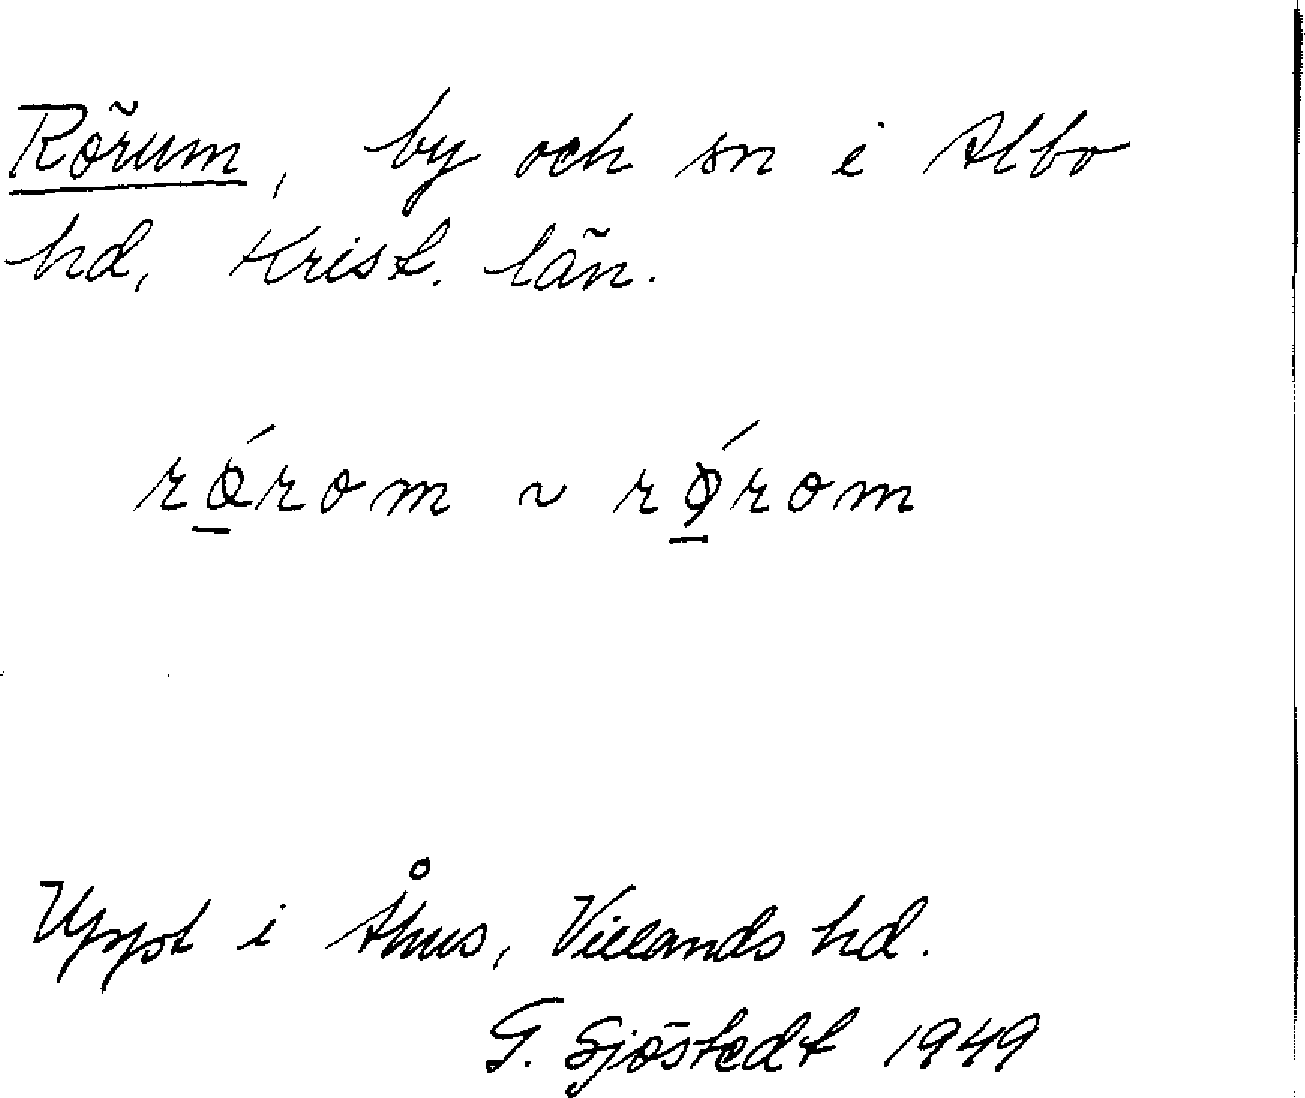 Rörum, by och sn i Albo
hd, Krist. län.
rǫ̱́rom ~ rǿ̱rom
Uppt i Åhus, Villands hd.
G. Sjöstedt 1949